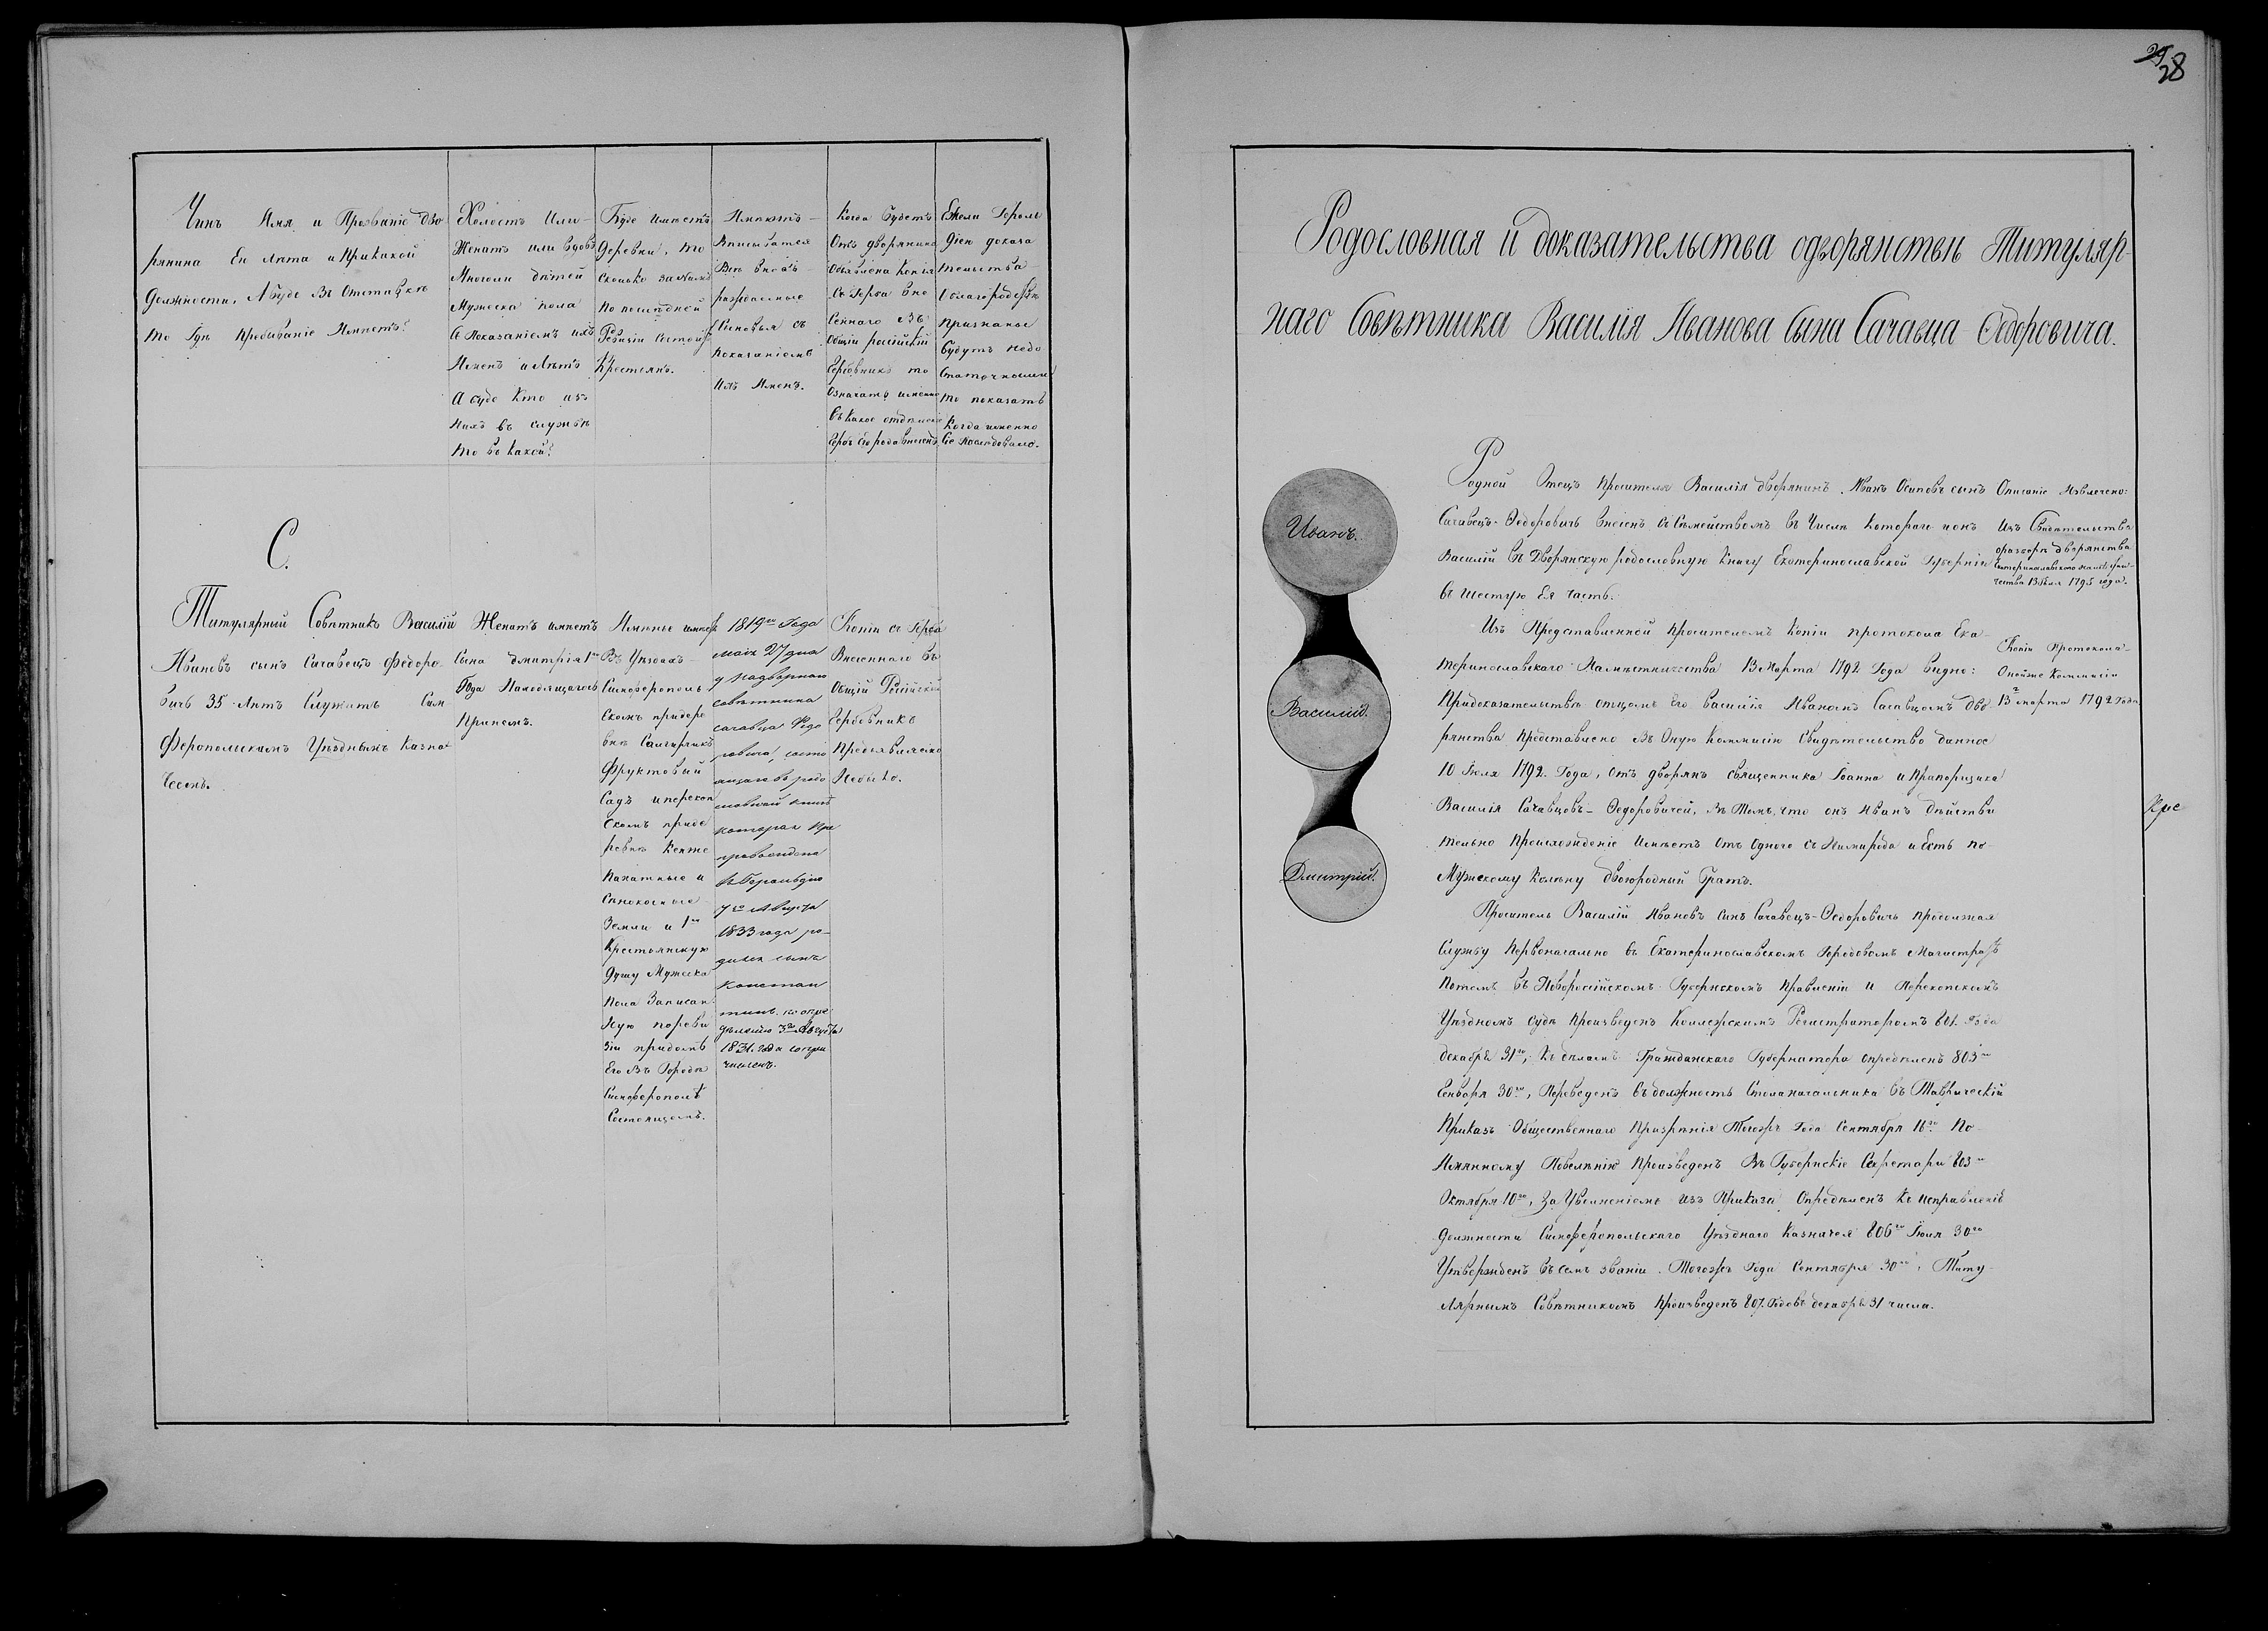 29
28
Чинъ Имя и Прозваніе дво
рянина Ея лѣта и При какой
Должности, А буде въ Отставкѣ
то Гдѣ Пребываніе Имѣетъ?
Холостъ Или
Женатъ или вдовъ
Многоли дѣтей
Мужеска пола
Съ Показаніемъ ихъ
Именъ и лѣтъ
А буде Кто изъ
Нихъ въ службѣ
то въ какой?
Буде имѣетъ
Деревни, то
Сколько за нимъ
По послѣдней
Ревизіи Состоитъ
Крестьянъ.
Имѣютъ
Вписыватся
Всѣ вновь
раждаемые
Сыновья съ
показаніемъ
Ихъ Именъ.
Когда будетъ
Отъ дворянина
Объявлена Копія
Съ Герба вне
сеннаго Въ
Общій россійскій
Гербовникъ то
Означать именно
въ какое отдѣленіе
Гербъ его рода внесенъ
Ежели Героль
діею доказа
тельства
О благородствѣ
признаны
будутъ недо
статочными
то показать
Когда именно
Сіе послѣдовало.
С.
Титулярный Совѣтникъ Василій
Ивановъ сынъ Сачавецъ Федоро-
вичь 35 лѣтъ Служитъ Сим
феропольскимъ Уѣзднымъ Казна
чеемъ.
Женатъ имѣетъ
Сына Дмитрія 1го
Года Находящагося
При немъ.
Имѣнье имѣетъ
Въ Уѣздахъ
Симферополь
Скомъ при дере
внѣ Салгирчикъ
Фруктовый
Садъ и перекоп
Скомъ при де
ревнѣ Кенже
Пахатные и
Сѣнокосные
Земли и 1ну
Крестьянскую
Душу Мужеска
Пола Записан
ную по реви
зіи при домѣ
Его Въ Городѣ
Симферополѣ
Состоящемъ.
1819го Года
маія 27 дня
у надворнаго
совѣтника
сачавца Федо
ровича, состо
ящаго въ родо
словной книгѣ
которая пре
провождена
въ Герольдію
7го Августа
1833 года ро-
дился сынъ
Констан
тинъ. по опре
дѣленію 3го Августа
1831. года сопри
численъ.
Копіи съ Герба
Внесеннаго въ
Общій Россійскій
Гербовникъ
Предъявляемо
Небыло.
Родословная и доказательства одворянствѣ Титуляр-
наго Совѣтника Василія Иванова Сына Сачавца-Ѳедоровича.
Иванъ.
Василій.
Дмитрій.
Родной Отецъ просителя Василія дворянинъ Иванъ Осиповъ сынъ
Сачавецъ-Ѳедоровичь внесенъ съ Семействомъ въ Числѣ котораго и онъ
Василій въ Дворянскую родословную Книгу Екатеринославской Губерніи
въ шестую Ея часть.
Описаніе Извлечено:
Изъ Свидетельства
о разборѣ дворянства
Екатеринославскаго намѣстни-
чества 13 Іюля 1795 года.
Изъ Представленной Просителемъ Копіи протокола Ека-
теринославскаго Намѣстничества 13 Марта 1792 Года видно:
При доказательствѣ отцомъ Его Василія Иваномъ Сачавцомъ дво
рянства представлено въ Оную Коммисію Свидѣтельство данное
10 Іюля 1792. Года, отъ дворянъ священника Іоанна и Прапорщика
Василія Сачавцовъ-Ѳедоровичей, въ томъ, что онъ Иванъ дѣйстви
тельно Происхожденіе Имѣетъ отъ одного съ Ними рода и Есть по-
Мужескому Колѣну двоюродный Братъ.
Копіи Протокола
Онойже Коммисіи
13го марта 1792 Года
Проситель Василій Ивановъ Сынъ Сачавецъ-Ѳедоровичь продолжая
Службу Первоначально въ Екатеринославскомъ Городовомъ Магистратѣ
Потомъ въ Новоросійскомъ Губернскомъ Правленіи и Перекопскомъ
Уѣздномъ Судѣ произведенъ Коллежскимъ Регистраторомъ 801. Года
декабря 31го, Къ дѣламъ Гражданскаго Губернатора опредѣленъ 803го
Генваря 30го, Переведенъ въ должность Столоначальника въ Таврическій
Приказъ Общественнаго Призрѣнія Тогожъ Года Сентября 16го По
Имянному Повелѣнію Произведенъ Въ Губернскіе Секретари 803го
Октября 10го, За Увольненіемъ изъ Приказа Опредѣленъ Къ исправленію
Должности Симферопольскаго Уѣзднаго Казначея 806го Іюля 30го
Утвержденъ въ семъ званіи Тогожъ Года Сентября 30го, Титу-
лярнымъ Совѣтникомъ Произведенъ 807. Годовъ декабря 31 числа.